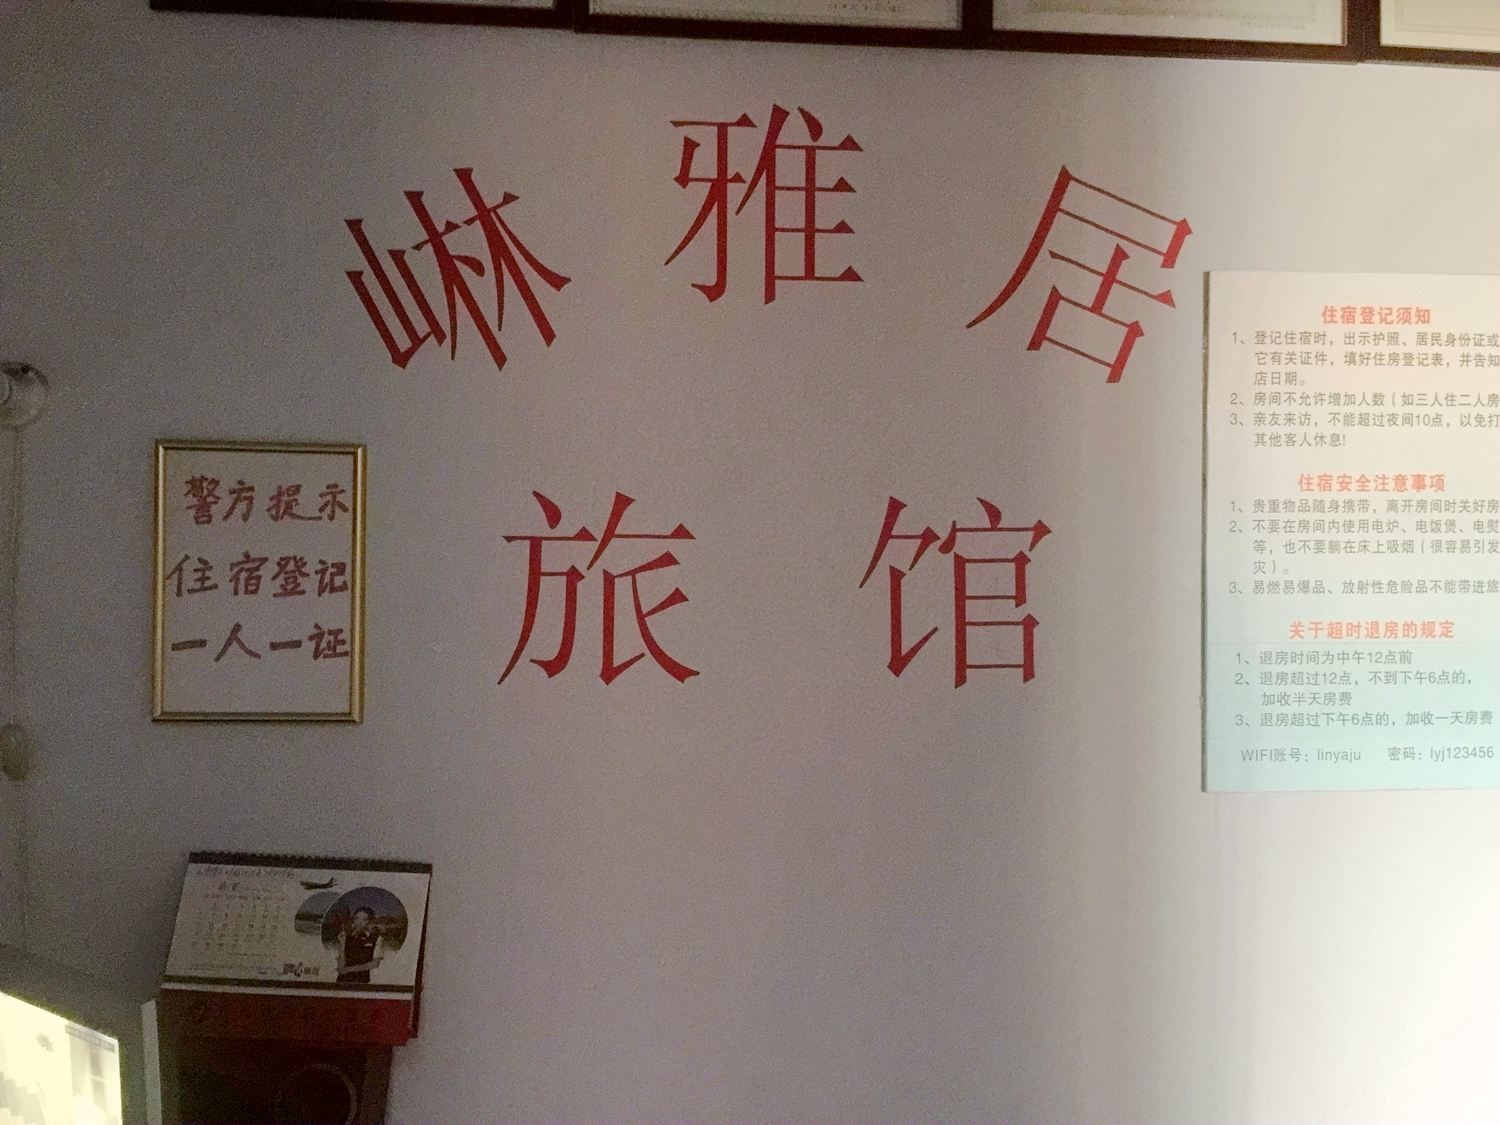 崊雅居
旅馆
警方提示
住宿登记
一人一证
住宿登记须知
1、登记住宿时，出示护照、居民身份证或
它有关证件，填好住房登记表，并告知
店日期。
2、房间不允许增加人数（如三人住二人房
3、亲友来访，不能超过夜间10点，以免打
其他客人休息!
住宿安全注意事项
1、贵重物品随身携带，离开房间时关好房
2、不要在房间内使用电炉、电饭煲、电熨
等，也不要躺在床上吸烟（很容易引发
灾）。
3、易燃易爆品、放射性危险品不能带进旅
关于超时退房的规定
1、退房时间为中午12点前
2、退房超过12点，不到下午6点的，
加收半天房费
3、退房超过下午6点的，加收一天房费
WIFI账号：linyaju 密码：lyj123456